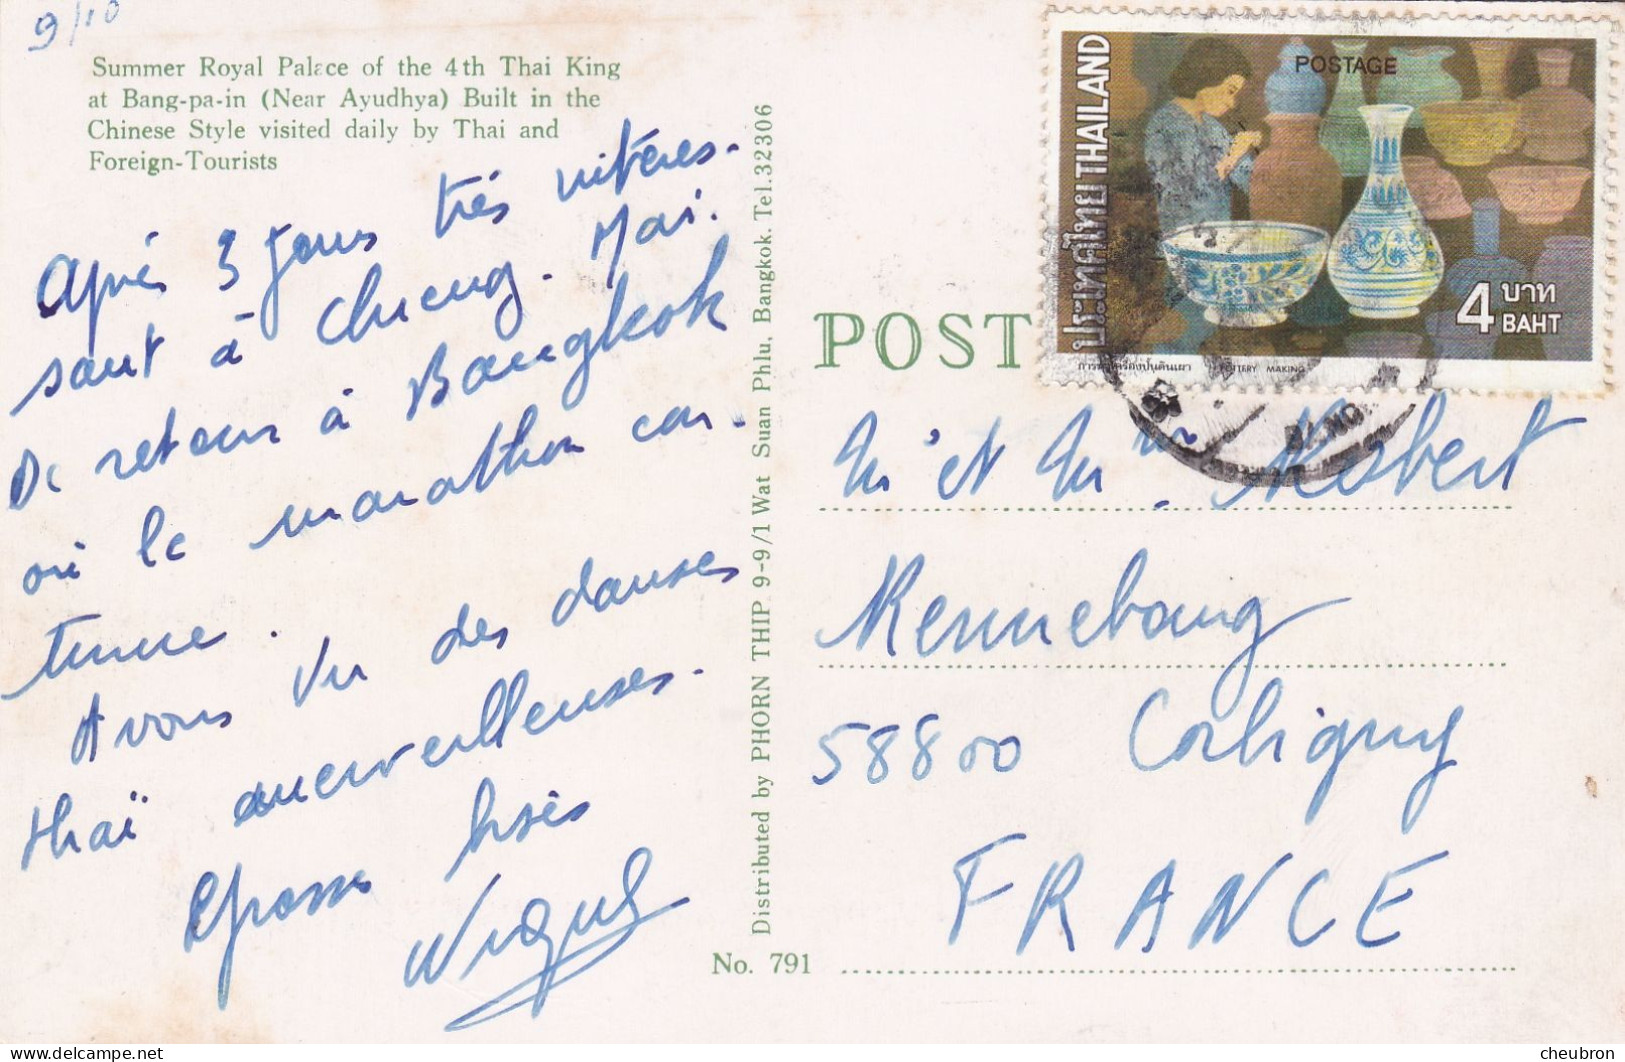 9/10
Summer Royal Palace of the 4th Thai King
at Bang-pa-in (Near Ayudhya) Built in the
Chinese Style visited daily by Thai and
Foreign-Tourists
Après 3 jours très intéres-
sant à Chieng-Mai.
De retour à Bangkok
où le marathon con-
tinue.
Avons vu des danses
thaï merveilleuses.
Grosses bises
Distributed by PHORN THIP 9-9/1 Wat Suan Phlu, Bangkok. Tel.32306
No. 791
POST
ประเทศไทย THAILAND
POSTAGE
4 บาท
BAHT
POTTERY MAKING
M et Mme
58800 Corbigny
FRANCE
cheubron